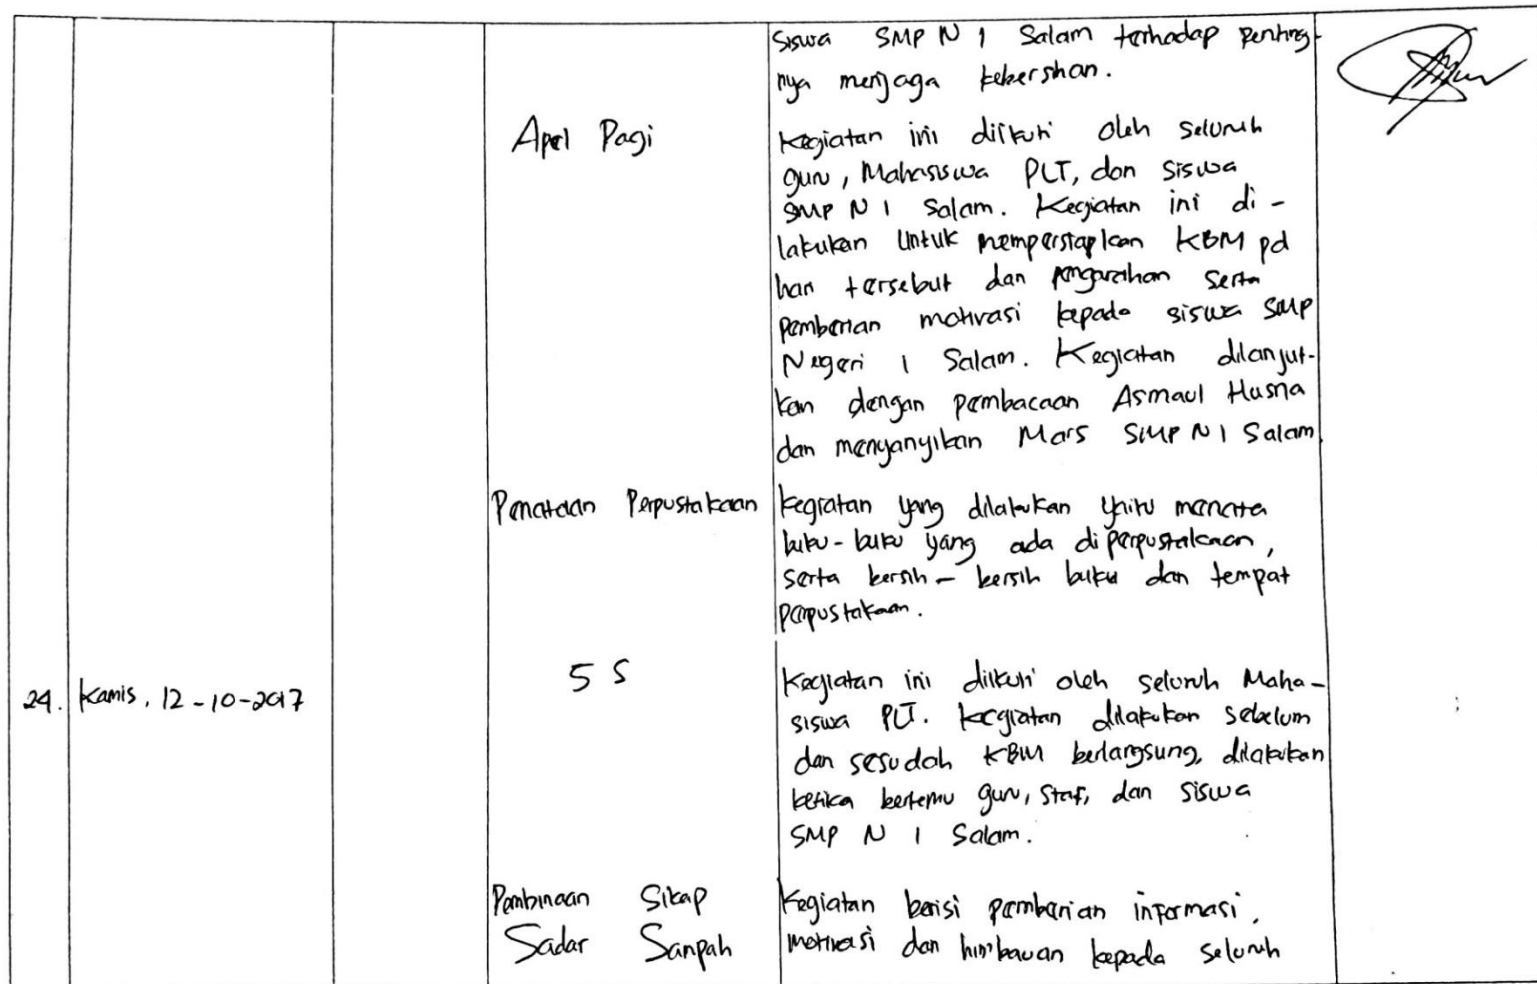 siswa SMP N 1 Salam terhadap penting-
nya menjaga kebersihan.
Apel Pagi
Kegiatan ini diikuti oleh seluruh
guru, Mahasiswa PLT, dan siswa
SMP N 1 Salam. Kegiatan ini di-
lakukan Untuk mempersiapkan KBM pd
hari tersebut dan pengarahan serta
pemberian motivasi kepada siswa SMP
Negeri 1 Salam. Kegiatan dilanjut-
kan dengan pembacaan Asmaul Husna
dan menyanyikan Mars SMP N 1 Salam
Penataan Perpustakaan
kegiatan yang dilakukan yaitu menata
buku-buku yang ada di perpustakaan,
serta bersih-bersih buku dan tempat
perpustakaan.
24. Kamis, 12-10-2017
5 S
Kegiatan ini diikuti oleh seluruh Maha-
siswa PLT. kegiatan dilakukan sebelum
dan sesudah KBM berlangsung, dilakukan
ketika bertemu guru, staf, dan siswa
SMP N 1 Salam.
Pembinaan Sikap
Sadar Sanpah
Kegiatan berisi pemberian informasi,
motivasi dan himbauan kepada seluruh